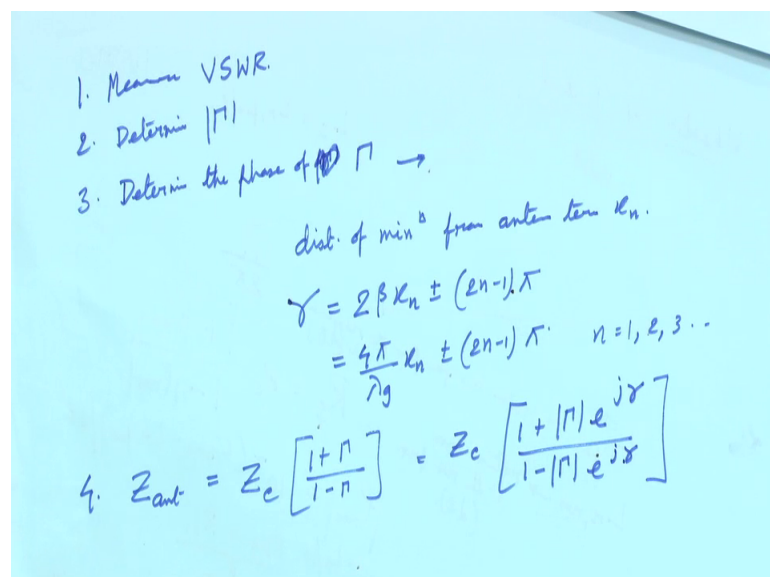 1. Measure VSWR.
2. Determin |Γ|
3. Determin the phase of Γ →
dist. of minᵃ from anten term xₙ.
γ = 2βxₙ ± (2n-1).π
= 4π/λg xₙ ± (2n-1) π. n = 1, 2, 3 ..
4. Zant = Zc [1+Γ / 1-Γ] = Zc [1+|Γ|e^jγ / 1-|Γ|e^jγ]